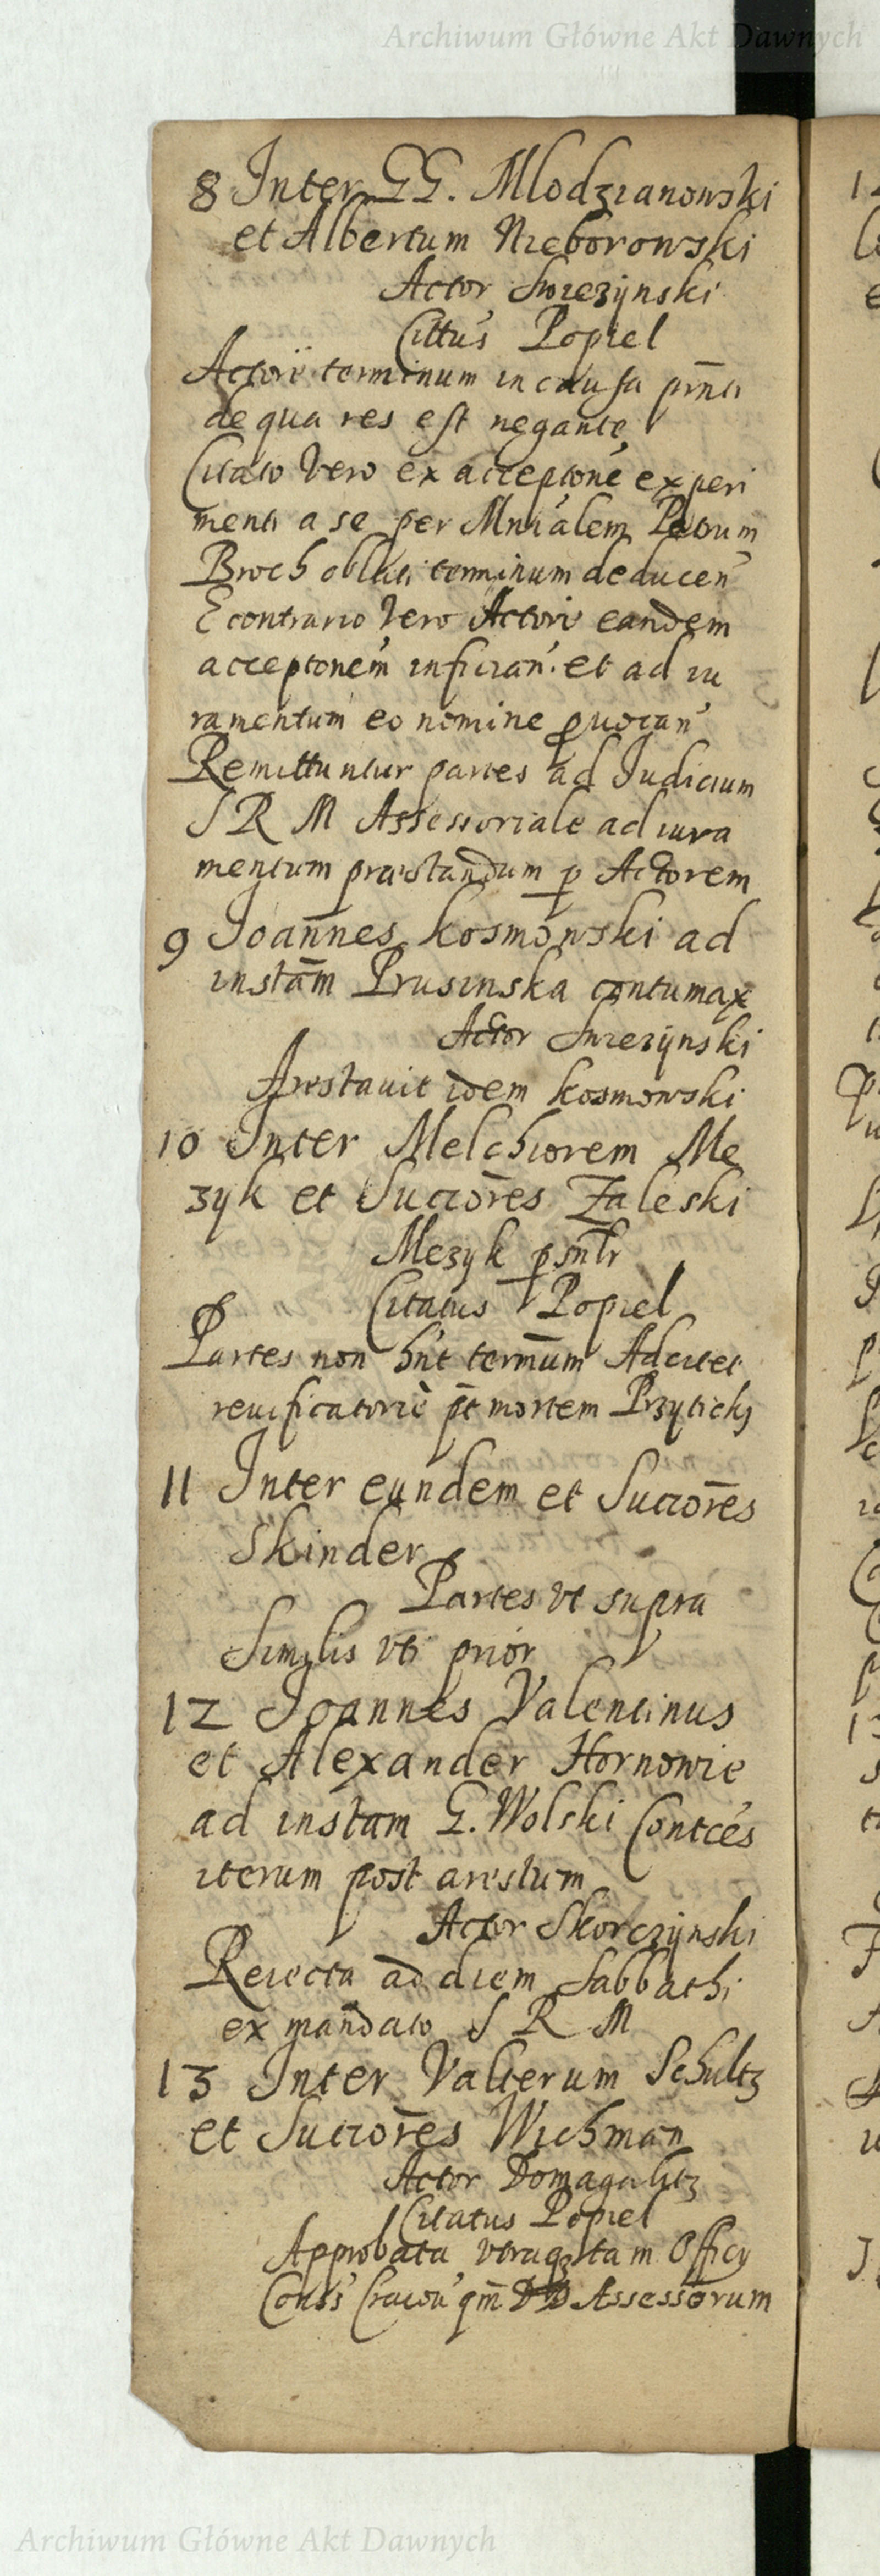 Archiwum Główne Akt Dawnych
8 Inter GG. Mlodzianowski
et Albertum Nieborowski
Actor Swiezÿnski
Cittus Popiel
Actori terminum in causa pñti
de qua res est negante
Citato vero ex acceptone experi
menti a se per Mniâlem Petrum
Broch oblati terminum deducen
E contrario vero Actori eandem
acceptonem infician. et ad iu
ramentum eo nomine provocan
Remittuntur partes ad Judicium
S R M Assessoriale ad iura
mentum præstandum p Actorem
9 Joannes Kosmowski ad
instãm Prusinska contumax
Actor Swiezÿnski
Arestavit idem Kosmowski
10 Inter Melchiorem Me
zyk et Succõres Zaleski
Mezyk psñlr
Citatus Popiel
Partes non hñt termũm Ad
revificatorie pt mortem
11 Inter eundem et Succõres
Skinder
Partes vt supra
Similis vti prior
12 Joannes Valentinus
et Alexander Hornowie
ad instam G. Wolski Contces
iterum post arestum
Actor Skorczÿnski
Reiecta ad diem Sabbathi
ex mandato S R M
13 Inter Valterum Schultz
et Succõres Wichman
Actor Domagalitz
Citatus Popiel
Approbata vtraqz tam Officÿ
Conss Cracou qm̃ DD Assessorum
Archiwum Główne Akt Dawnych